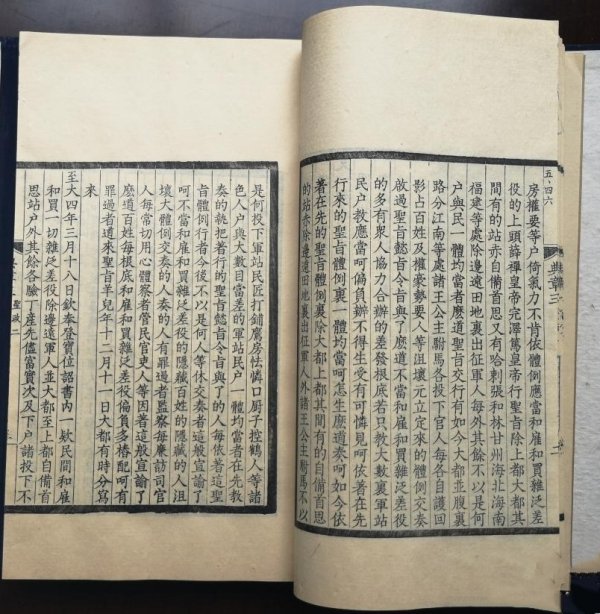 五·四六
典章三
房權要等户倚氣力不肯依體例應當和雇和買雜泛差
役的上頭薛禪皇帝完澤篤皇帝行聖旨除上都大都其
間有的站赤自備首思又有哈剌張和林甘州海北海南
福建等處除邊遠田地裏出征軍人每外其餘不以是何
户與民一體均當者麽道聖旨交行有如今大都並腹裏
路分江南等處諸王公主駙馬各投下官人每各自護回
影占百姓及權豪勢要人等沮壞元立定來的體例交奏
啟過聖旨懿旨令旨與了麽道不當和雇和買雜泛差役
的多有衆人協力合辦的差發根底若只教大數裏軍站
民户教應當呵偏負辦不得生受有可憐見呵依著在先
行來的聖旨體例裏一體均當呵怎生麽道奏呵如今依
著在先的聖旨體例裏除大都上都其間有的自備首思
的站赤除邊遠田地裏出征軍人外諸王公主駙馬不以
是何投下軍站民匠打鋪鷹房怯憐口厨子控鶴人等諸
色人户與大數目當差的軍站民户一體均當者在先教
奏的執把著行的聖旨懿旨令旨與了的人每依著聖
旨體例行者今後不以是何人等休交奏者這般宣諭了
呵不當和雇和買雜泛差役的隱藏百姓的隱藏的人沮
壞大體例交奏的人奏的人有罪過者監察每廉訪司官
人每常切用心體察者管民官吏人等因著這般宣諭了
麽道百姓每根底和雇和買雜泛差役偏負多樁配呵有
罪過者道來聖旨羊兒年十二月十一日大都有時分寫
來
至大四年三月十八日欽奉登寳位詔書内一欵民間和雇
和買一切雜泛差役除邊遠軍人並大都至上都自備首
思站户外其餘各驗丁産先儘富實次及下户諸投下不
聖政二